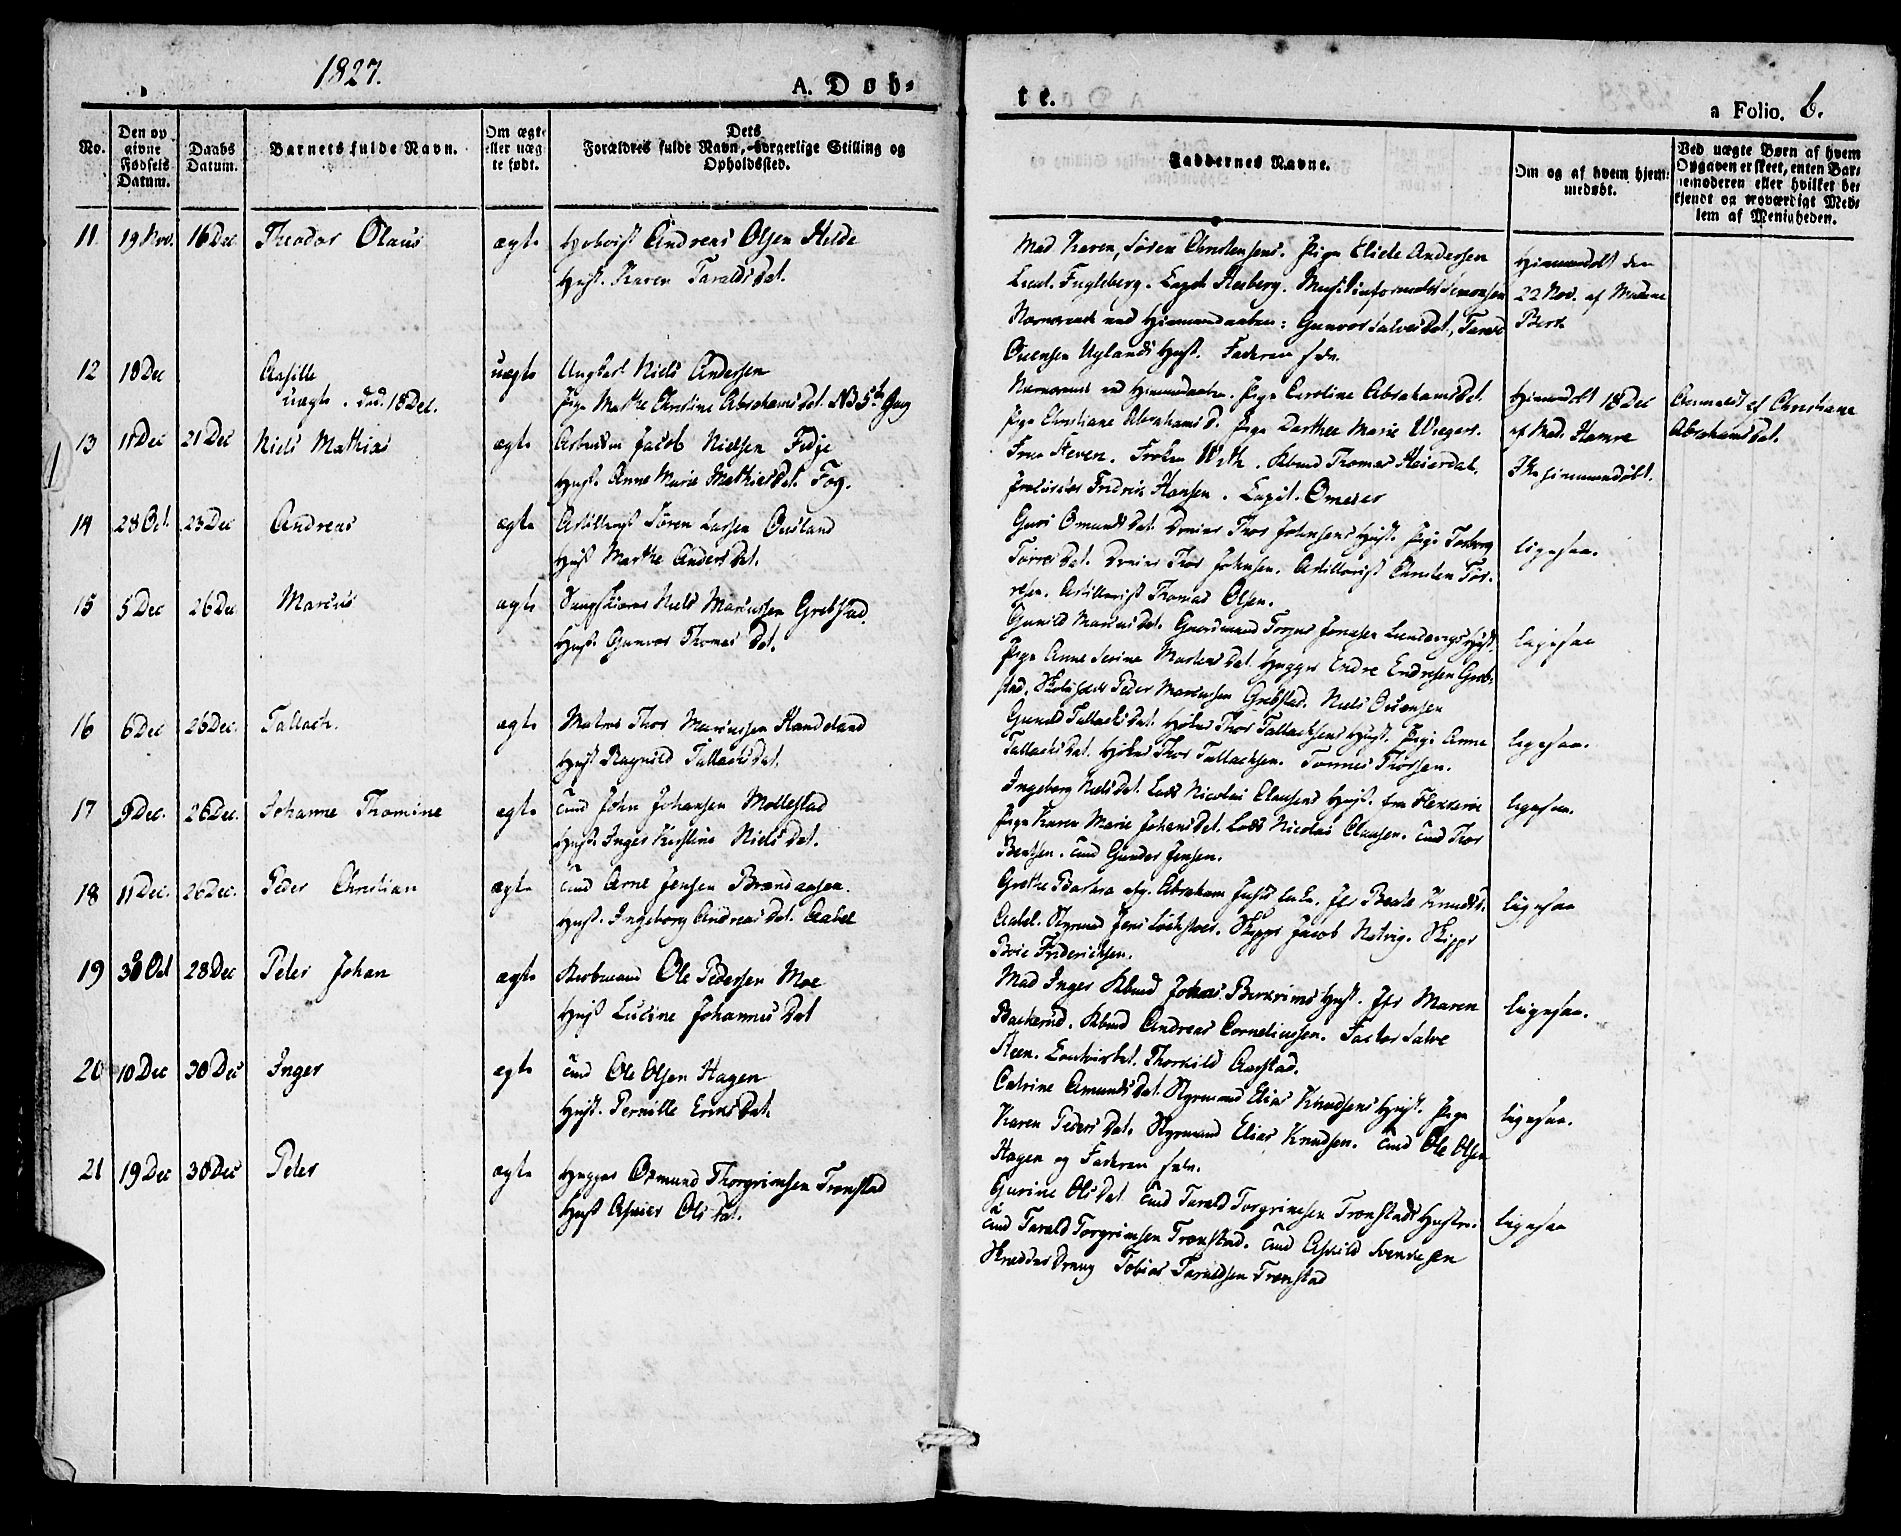 1827.
A. Døb-
te.
a Folio. 6.
No.
Den opgivne Fødsels Datum.
Daabs Datum.
Barnets fulde Navn.
Om ægte eller uægte født.
Dets Forældres fulde Navn, borgerlige Stilling og Opholdssted.
Faddernes Navne.
Om og af hvem hjemmedøbt.
Ved uægte Børn af hvem Opgaven er skeet, enten Barnemoderen eller hvilket bekjendt og troværdigt Medlem af Menigheden.
11 19 Nov. 16 Dec Theodor Olaus ægte Andreas Olsen Helde
Hust. Karen Taralds Dat.
Mad Karen, Søren Christensens. Pige Elide Andersen
Lieut. Fugleberg. Capt.
Nærværende ved Hjemmedaaben: Gunvor Salves Dat,
Ouensen Uglands Hust. Faderen selv.
Hjemmedøbt den
22 Nov. af Madame
12 18 Dec uægte Ungkarl Niels Andersen
uægte. død. 18 Dec.
Pige Marthe Christine Abrahams Dat.
Nærværende ved Hjemmedaaben. Pige Caroline Abrahams Dat.
Pige Christiane Abrahams D. Pige Dorthea Marie Wiegers.
Hjemmedøbt 18 Dec
af Mad. Hamre
Anmeldt af Christiane
Abrahams Dat.
13 11 Dec 21 Dec Niels Mathias ægte Jacob Nielsen Fedje
Hust. Anne Marie Mathies Dat. Foy.
Frue Steven. Frøken With. Kbmd Thomas Heierdal.
Fredrik Hansen. Capit. Omeier
Ikke hjemmedøbt.
14 28 Oct. 23 Dec Andreas ægte Artillerist Søren Larsen Ousland
Hust Marthe Anders Dat.
Guri Omunds Dat. Thor Johnsens Hust. Pige Torborg
Torres Dat. Thor Johnsen. Artillerist Christen Tor-
resen. Artillerist Thomas Olsen.
ligesaa.
15 5 Dec 26 Dec Marcus ægte Niels Marcussen Grebstad
Hust. Gunvor Thomas Dat.
Gunild Marcus Dat. Gaardmand Torjus Jenssen Lundevigs Hust.
Pige Anne Serine Mortens Dat. Hugger Endre Endresen Greb-
stad. Peder Marcussen Grebstad. Niels Ouensen
ligesaa
16 6 Dec 26 Dec. Tallach. ægte Matros Thor Marcussen Handeland
Hust Ragnild Tallachs Dat.
Gunild Tallachs Dat. Thor Tallachsens Hust. Pige Anne
Tallachs Dat. Thor Tallachsen. Tønnes Thorsen.
ligesaa.
17 9 Dec. 26 Dec. Johanne Thomine ægte John Johansen Mollestad
Hust. Inger Kirstine Niels Dat.
Ingeborg Niels Dat. Lods Nicolai Clausens Hust. fra Flekkerø
Pige Karen Marie Johans Dat. Lods Nicolai Clausen. Thor
Bentsen. Gunder Jensen.
ligesaa.
18 11 Dec. 26 Dec. Peder Christian ægte Arne Jensen Brandaasen.
Hust. Ingeborg Andreas Dat. Aabel
Grethe Barbara Abraham Beate Knudsd.
Aabel. Styrmd Jens Skippr Jacob Natvig. Skippr
Boie Friderichsen.
ligesaa
19 30 Oct 28 Dec Peter Johan ægte Ole Pedersen Moe
Hust Lucine Johannes Dat
Mad Inger Kbmd Johns Birkrims Hust. Jfr Maren
Backerud. Kbmd Andreas Corneliussen. Factor Salve
Steen. Thorkild Aarstad.
ligesaa.
20 10 Dec 30 Dec Inger ægte Ole Olsen Hagen
Hust. Pernille Eriks Dat.
Catrine Amunds Dat. Styrmand Elias Knudsens Hust. Pige
Karen Peders Dat. Styrmand Elias Knudsen. Ole Olsen
Hagen og Faderen selv.
ligesaa.
21 19 Dec 30 Dec Peter ægte Hugger Osmund Thorgrimsen Tronstad
Hust Ols Dat.
Gurine Ols Dat. Tarald Torgrimsen Tronstads Hustr.
Tarald Torgrimsen Tronstad. Askild Svendsen
Skrædder Dreng Tobias Taraldsen Tronstad
ligesaa